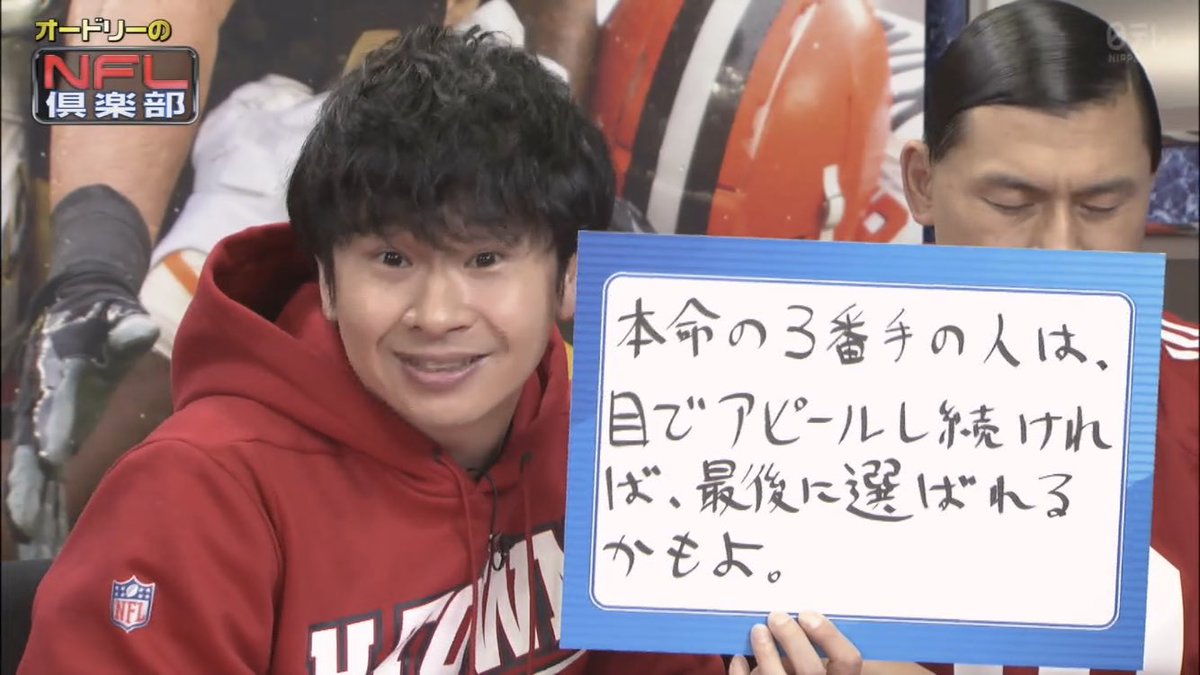 オードリーの
NFL
倶楽部
日テレ
本命の3番手の人は、
目でアピールし続けれ
ば、最後に選ばれる
かもよ。
NFL